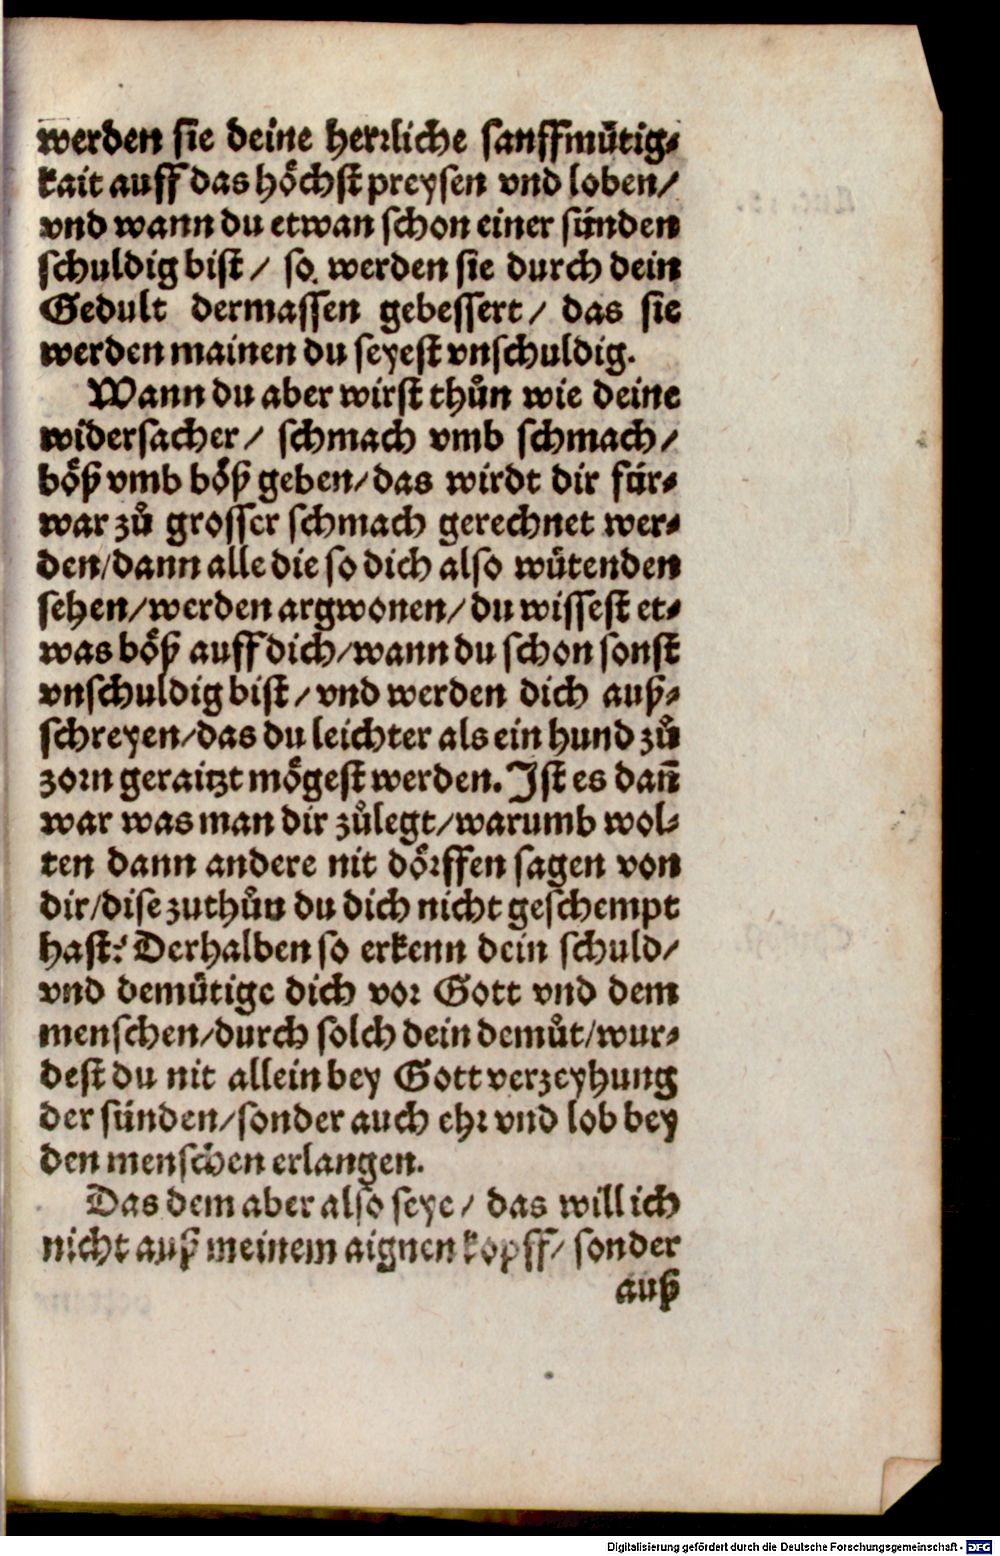 werden sie deine herꝛliche sanfftmütig⸗
kait auff das höchst preysen vnd loben/
vnd wann du etwan schon einer sünden
schuldig bist/ so werden sie durch dein
Gedult dermassen gebessert/ das sie
werden mainen du seyest vnschuldig.
Wann du aber wirst thůn wie deine
widersacher/ schmach vmb schmach/
böß vmb böß geben/das wirdt dir für⸗
war zů grosser schmach gerechnet wer⸗
den/dann alle die so dich also wütenden
sehen/werden argwonen/du wissest et⸗
was böß auff dich/wann du schon sonst
vnschuldig bist/vnd werden dich auß⸗
schreyen/das du leichter als ein hund zů
zoꝛn geraitzt mögest werden. Ist es dañ
war was man dir zůlegt/warumb wol⸗
ten dann andere nit döꝛffen sagen von
dir/dise zuthůn du dich nicht geschempt
hast? Derhalben so erkenn dein schuld/
vnd demütige dich voꝛ Gott vnd dem
menschen/durch solch dein demůt/wur⸗
dest du nit allein bey Gott verzeyhung
der sünden/sonder auch ehꝛ vnd lob bey
den menschen erlangen.
Das dem aber also seye/ das will ich
nicht auß meinem aignen kopff/ sonder
auß
Digitalisierung gefördert durch die Deutsche Forschungsgemeinschaft - DFG